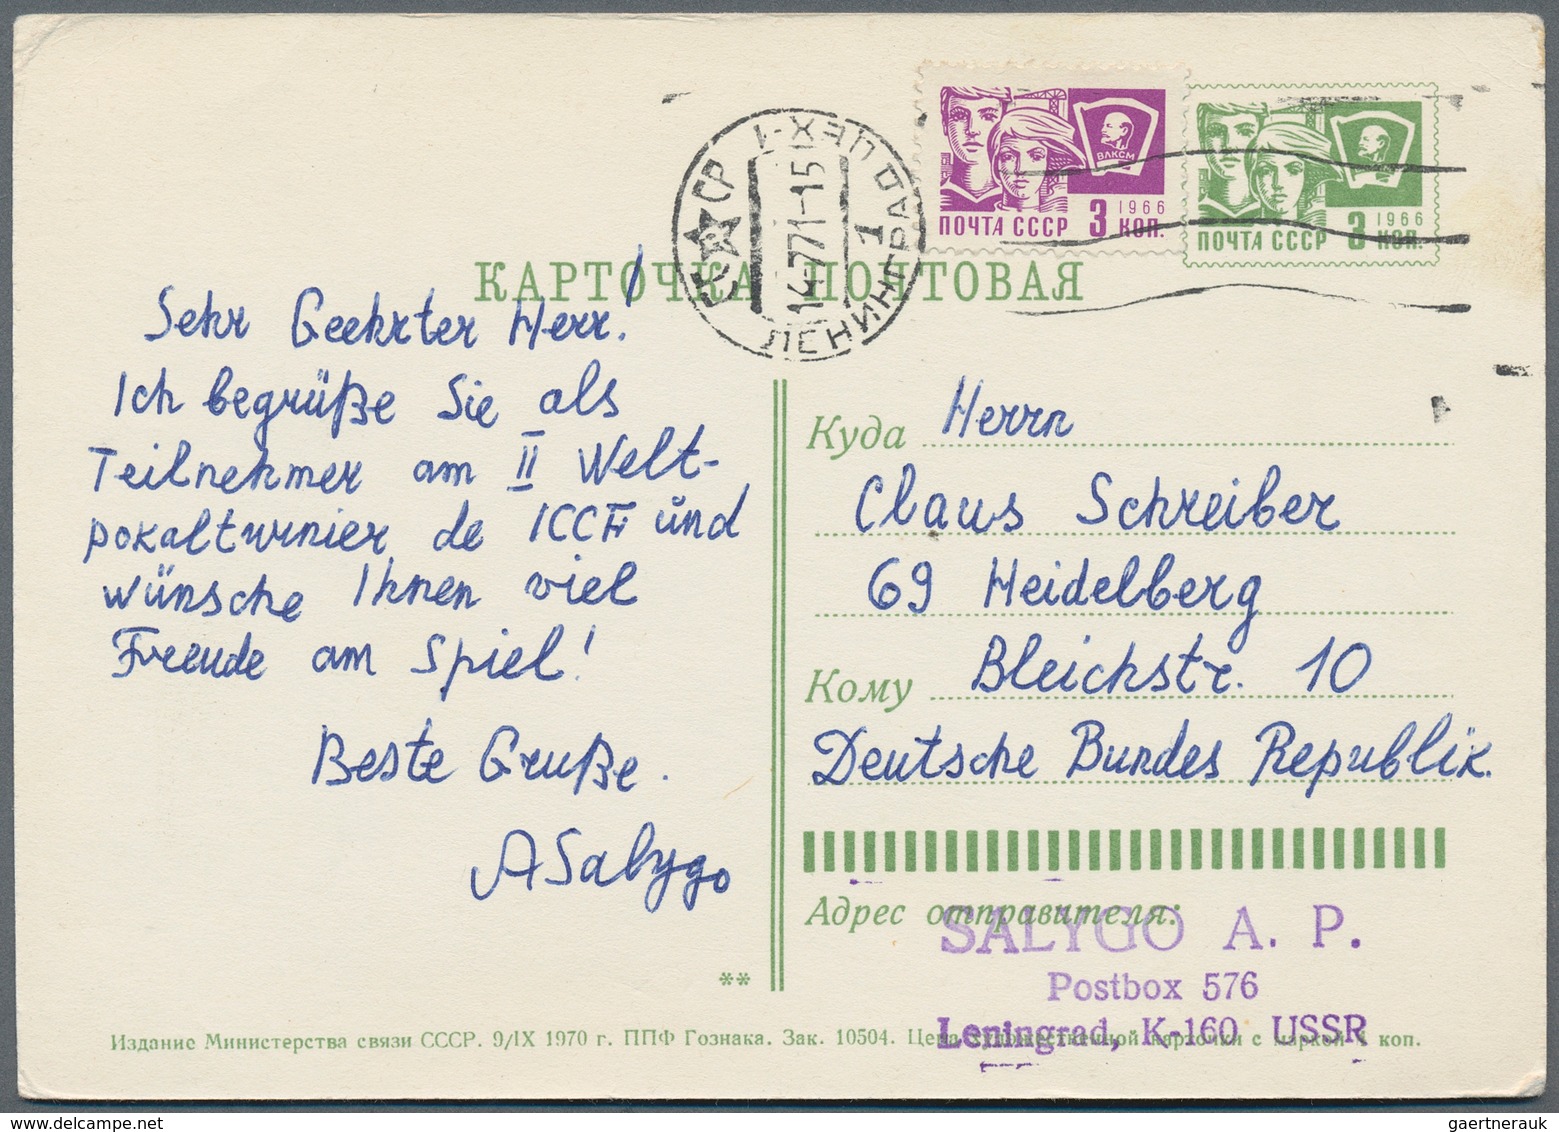 ВЛКСМ
1966
ПОЧТА СССР 3 КОП.
1966
ПОЧТА СССР 3 КОП.
ЛЕНИНГРАД ЦЕХ-1
СССР
14-7 71-15
1
КАРТОЧКА ПОЧТОВАЯ
Sehr Geehrter Herr!
Ich begrüße Sie als
Teilnehmer am II Welt-
pokalturnier de ICCF und
wünsche Ihnen viel
Freude am Spiel!
Beste Gruße.
ASalygo
Куда Herrn
Claus Schreiber
69 Heidelberg
Кому Bleichstr. 10
Deutsche Bundes Republik.
Адрес отправителя:
SALYGO A. P.
Postbox 576
Leningrad, K-160 USSR
**
Издание Министерства связи СССР. 9/IX 1970 г. ППФ Гознака. Зак. 10504. Цена художественной карточки с маркой 4 коп.
gaertnerauk